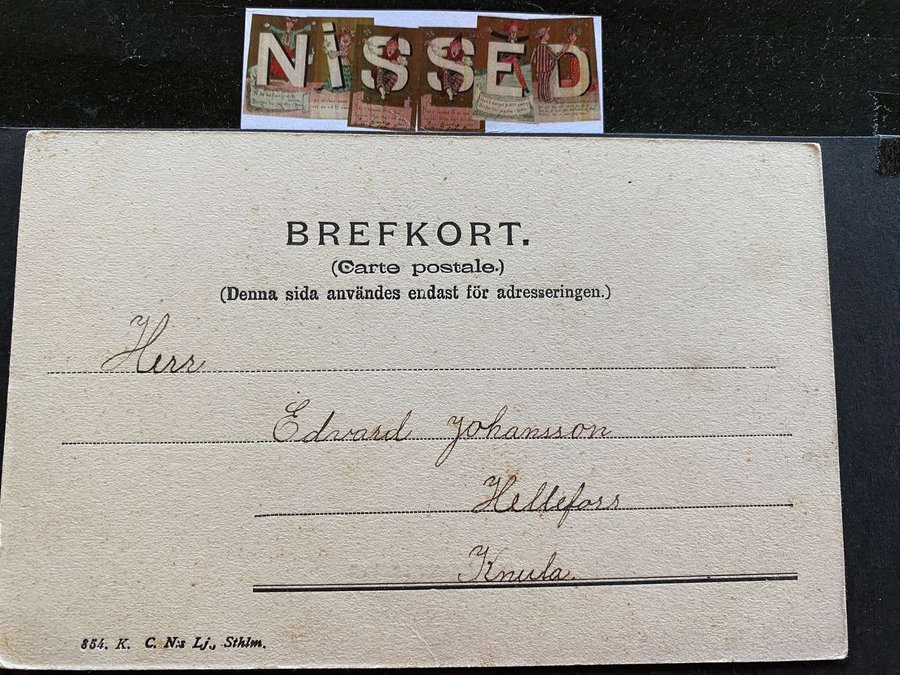 NISSED
BREFKORT.
(Carte postale.)
(Denna sida användes endast för adresseringen.)
Herr
Edvard Johansson
Hellefors
Knula
854. K. C. N:s Lj., Sthlm.